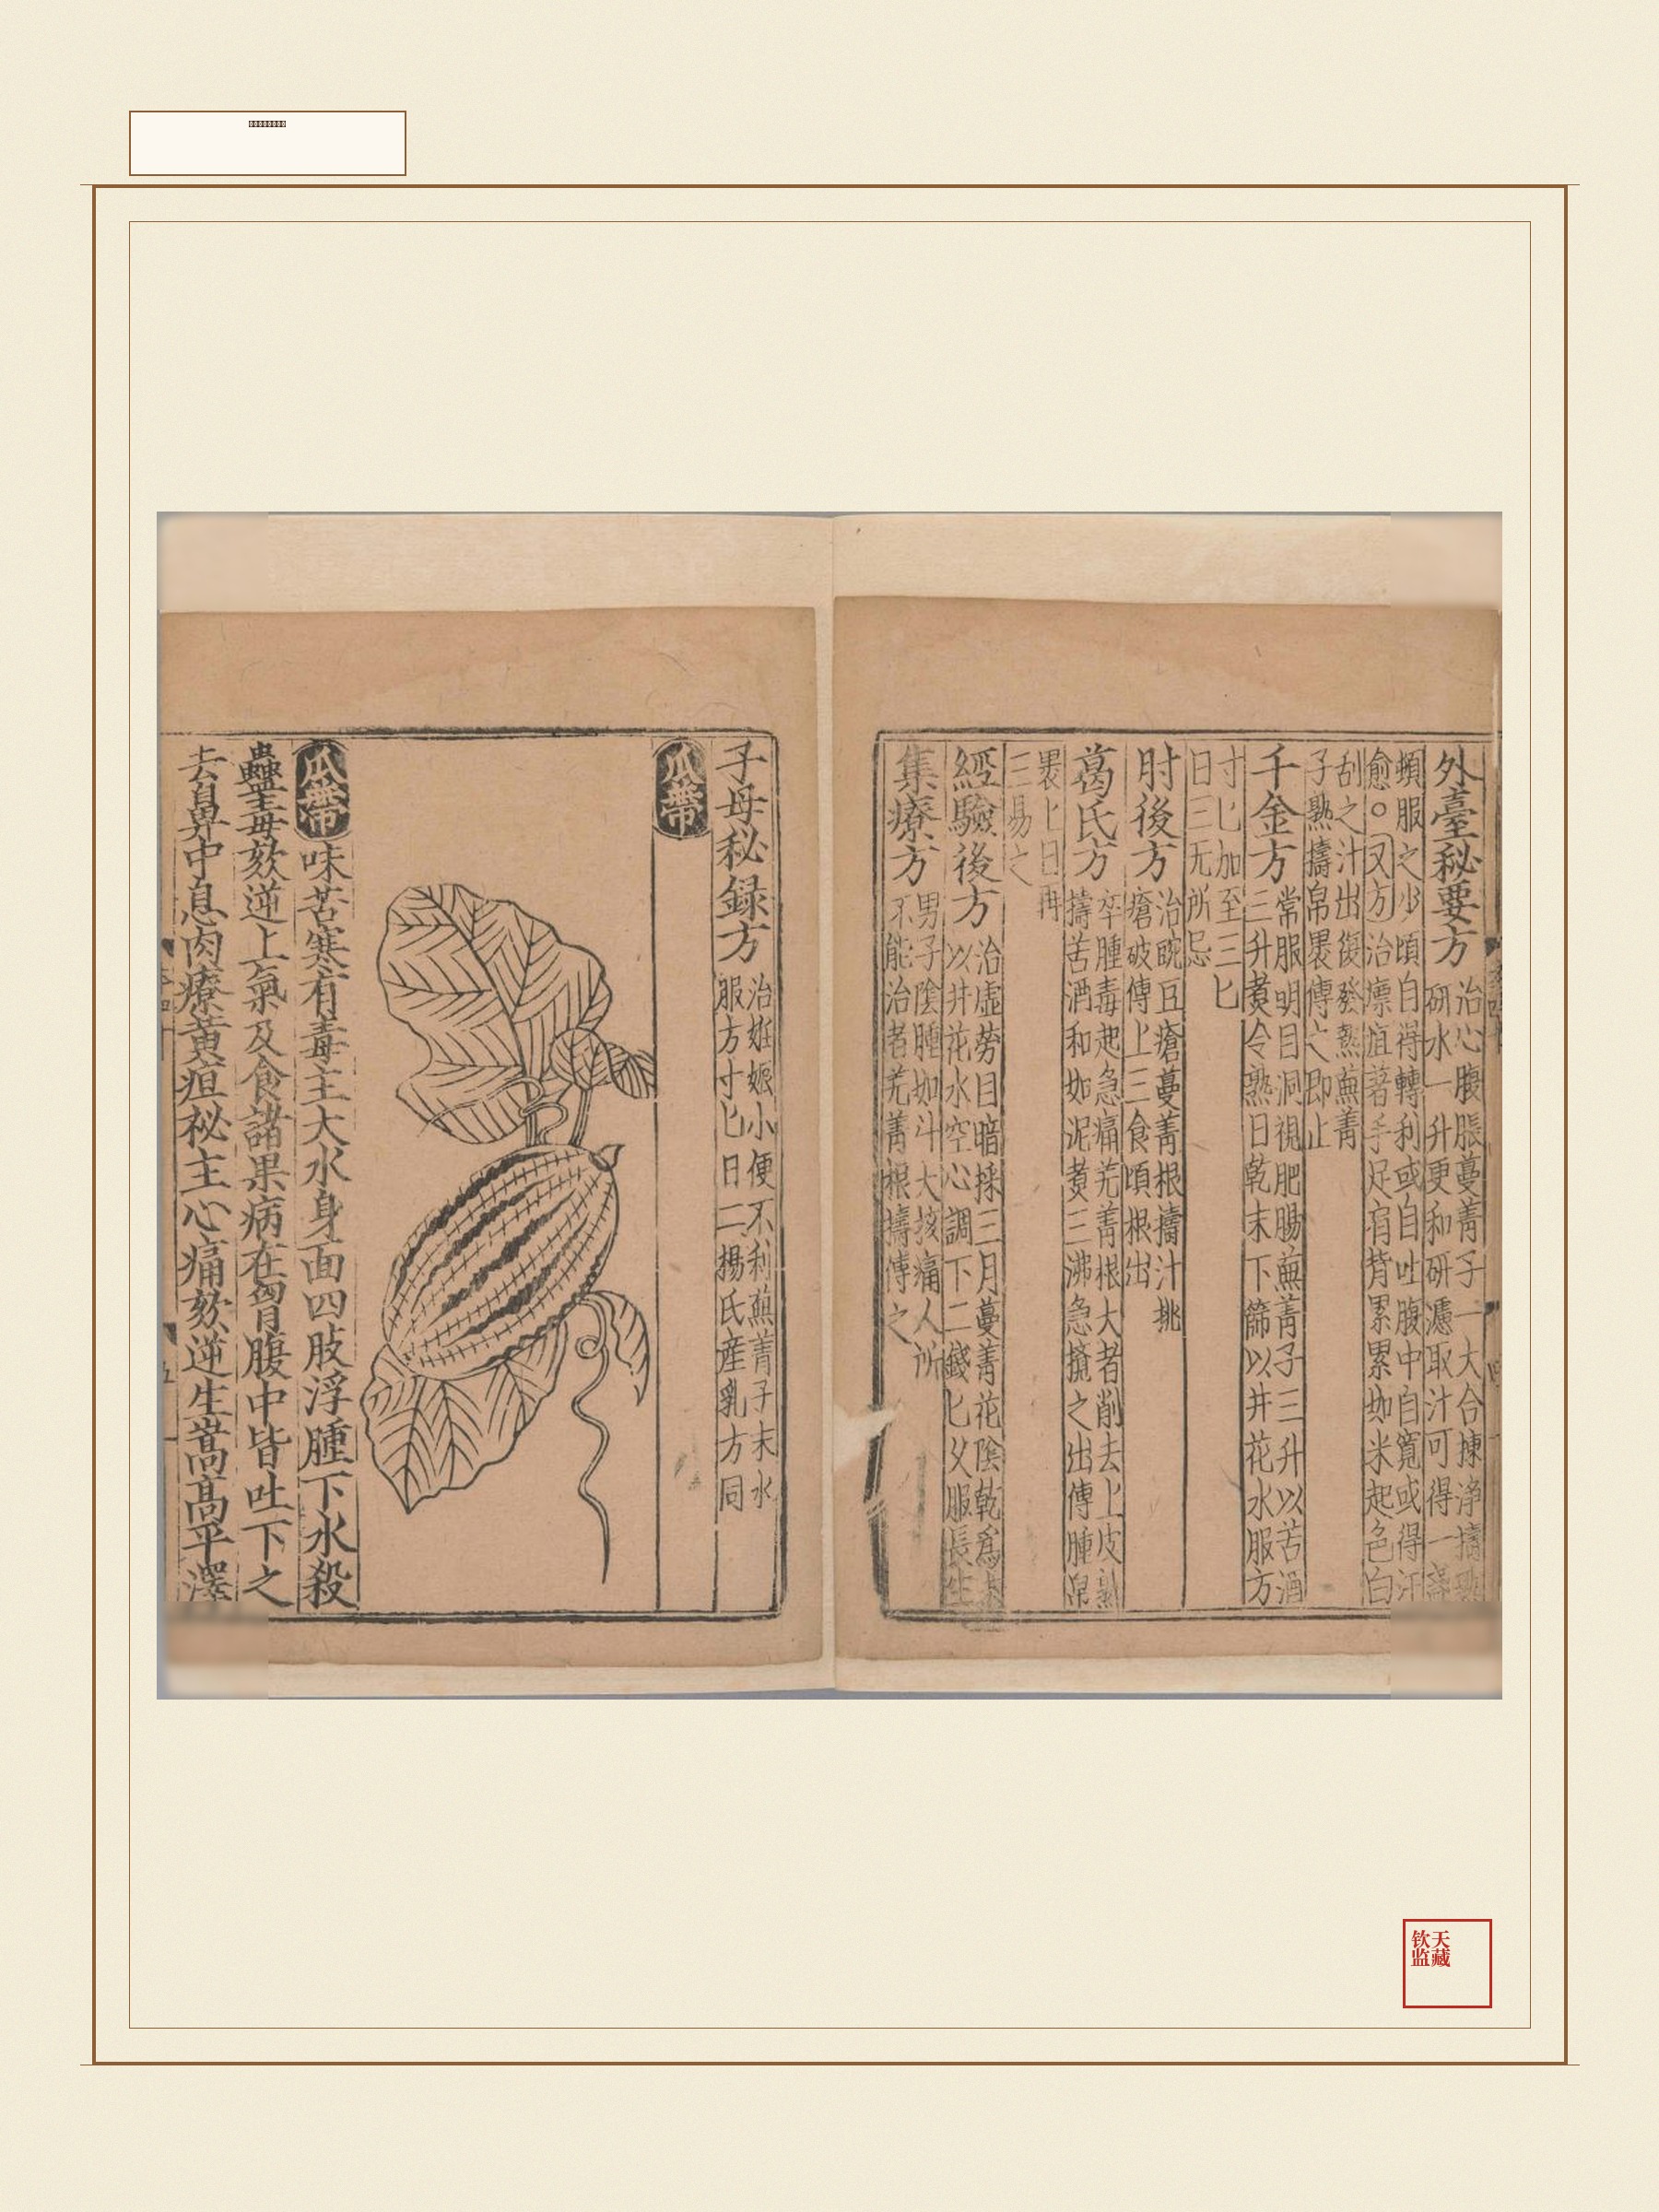 外臺秘要方
治心腹脹蔓菁子一大合揀淨擣熟
研水一升更和研濾取汁可得一盞
頓服之少頃自得轉利或自吐腹中自寬或得汗
愈○又方治瘭疽著手足肩背累累如米起色白
刮之汁出復發熬蕪菁
子熟擣帛褁傅之即止
千金方
常服明目洞視肥腸蕪菁子三升以苦酒
三升煑令熟日乾末下篩以井花水服方
寸匕加至三匕
日三无所忌
肘後方
治豌豆瘡蔓菁根擣汁挑
瘡破傅上三食頃根出
葛氏方
卒腫毒起急痛芜菁根大者削去上皮熟
擣苦酒和如泥煑三沸急攪之出傅腫帛
褁上日再
三易之
經驗後方
治虛勞目暗採三月蔓菁花陰乾爲末
以井花水空心調下二錢匕久服長生
集療方
男子陰腫如斗大核痛人所
不能治者芜菁根擣傅之
子母秘録方
治姙娠小便不利蕪菁子末水
服方寸匕日二楊氏産乳方同
瓜蔕
瓜蔕
味苦寒有毒主大水身面四肢浮腫下水殺
蠱主毒欬逆上氣及食諸果病在胷腹中皆吐下之
去鼻中息肉療黄疸祕主心痛欬逆生嵩髙平澤
天藏
钦监